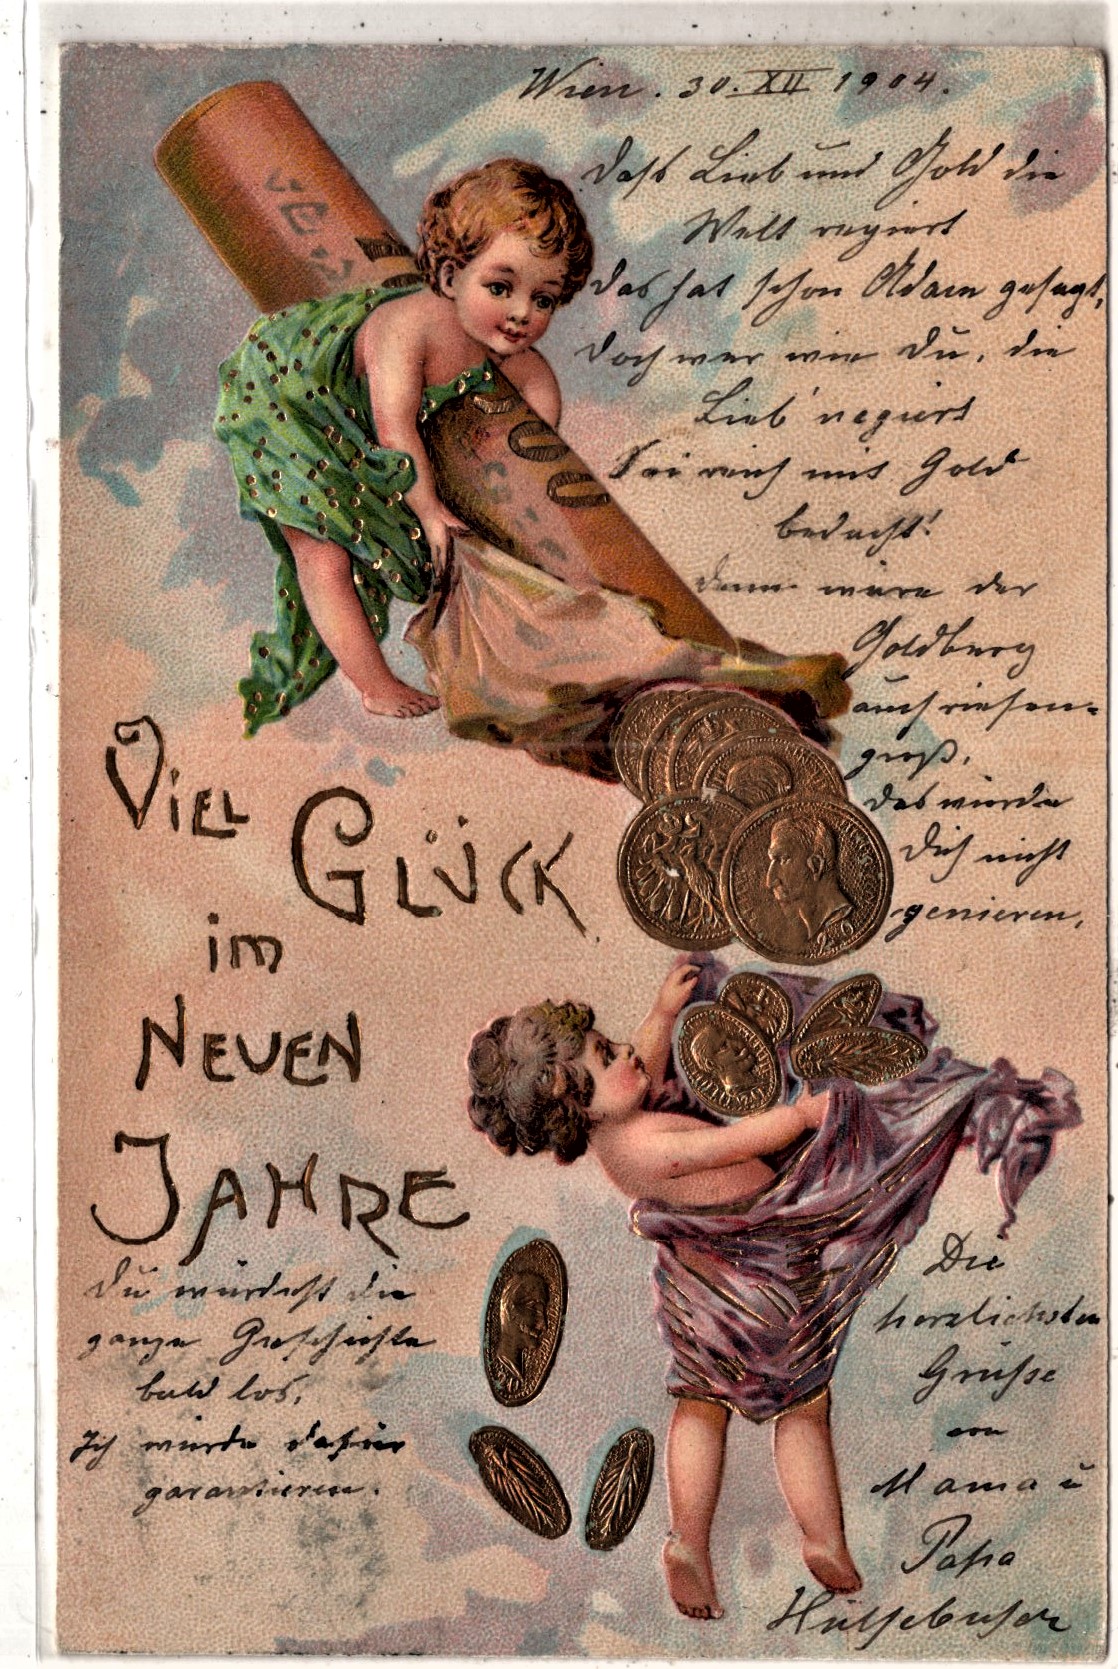 Wien. 30. XII 1904.
Daß Lieb und Gold die
Welt regiert
das hat schon Adam gesagt,
doch wer wie Du, die
Lieb' negiert
Sei reich mit Gold
bedacht!
Dann wäre der
Goldberg
auch riesen-
groß,
das würde
Dich nicht
genieren,
VIEL
GLÜCK
im
NEUEN
JAHRE
Du würdest die
ganze Geschichte
bald los,
Ich würde dafür
garantieren.
Die
herzlichsten
Grüße
von
Mama u
Papa
500
20